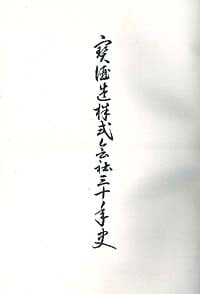 寳酒造株式会社三十年史